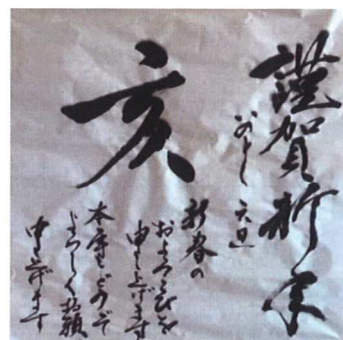 謹賀新年
亥
新春の
およろこびを
申し上げます
本年もどうぞ
よろしくお願
申し上げます